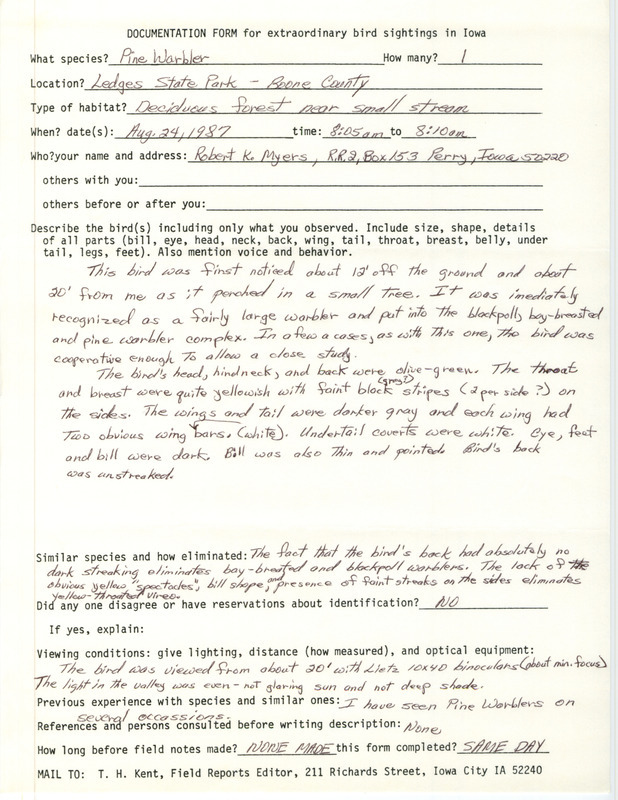 DOCUMENTATION FORM for extraordinary bird sightings in Iowa
What species? Pine Warbler How many? 1
Location? Ledges State Park - Boone County
Type of habitat? Deciduous forest near small stream
When? date(s): Aug. 24, 1987 time: 8:05am to 8:10am
Who?your name and address: Robert K. Myers, R.R.2, Box 153 Perry, Iowa 50220
others with you:
others before or after you:
Describe the bird(s) including only what you observed. Include size, shape, details
of all parts (bill, eye, head, neck, back, wing, tail, throat, breast, belly, under
tail, legs, feet). Also mention voice and behavior.
This bird was first noticed about 12' off the ground and about
20' from me as it perched in a small tree. It was imediately
recognized as a fairly large warbler and put into the blackpoll, bay-breasted
and pine warbler complex. In a few cases, as with this one, the bird was
cooperative enough to allow a close study.
The bird's head, hindneck, and back were olive-green. The throat
and breast were quite yellowish with faint black (grey?) stripes (2 per side?) on
the sides. The wings and tail were darker gray and each wing had
Two obvious wing bars. (white). Undertail coverts were white. Eye, feet
and bill were dark. Bill was also Thin and pointed. Bird's back
was unstreaked.
Similar species and how eliminated: The fact that the bird's back had absolutely no
dark streaking eliminates bay-breasted and blackpoll warblers. The lack of the
obvious yellow "spectacles", bill shape, and presence of faint streaks on the sides eliminates
yellow-throated vireo.
Did any one disagree or have reservations about identification? NO
If yes, explain:
Viewing conditions: give lighting, distance (how measured), and optical equipment:
The bird was viewed from about 20' with Lietz 10x40 binoculars (about min. focus)
The light in the valley was even - not glaring sun and not deep shade.
Previous experience with species and similar ones: I have seen Pine Warblers on
several occassions.
References and persons consulted before writing description: None
How long before field notes made? NONE MADE this form completed? SAME DAY
MAIL TO: T. H. Kent, Field Reports Editor, 211 Richards Street, Iowa City IA 52240